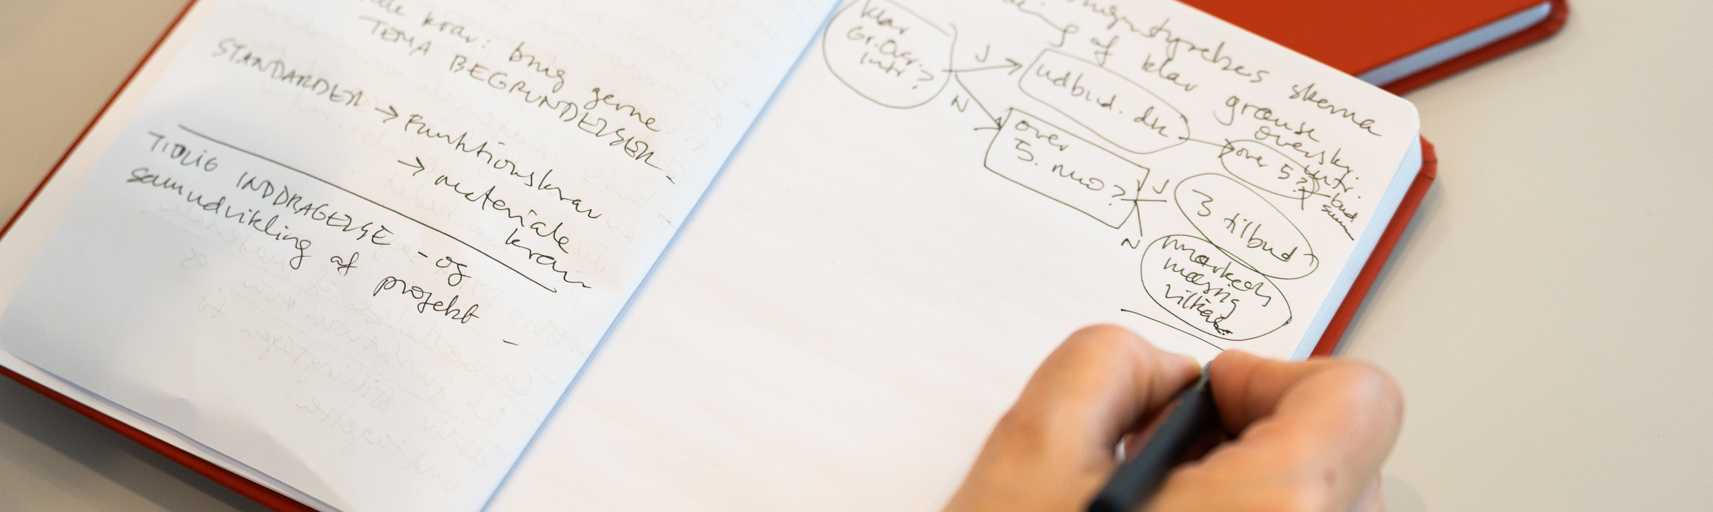 krav: brug gerne
TEMA BEGRUNDELSER
STANDARDER → Funktionskrav
→ materiale
krav
TIDLIG INDDRAGELSE - og
samudvikling af projekt -
skema
af klar grænse
oversk.
klar
Gr.Over.
intr?
J
N
udbud.dk
over 5?
intr.
over
5. mio?
J
N
3 tilbud
markeds
mæssig
vilkår